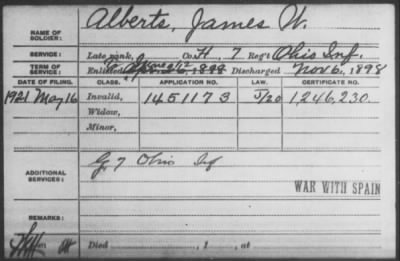 NAME OF SOLDIER: Alberts, James W.
SERVICE: Late rank, Co. H, 7 Reg't Ohio Inf.
TERM OF SERVICE: Enlisted June 12, 1898 Discharged Nov 6, 1898
DATE OF FILING. CLASS. APPLICATION NO. LAW. CERTIFICATE NO.
1921 May 16 Invalid, 1451173 J/20 1,246,230.
Widow,
Minor,
ADDITIONAL SERVICES: G, 7 Ohio Inf
WAR WITH SPAIN
REMARKS:
Died , 1 , at